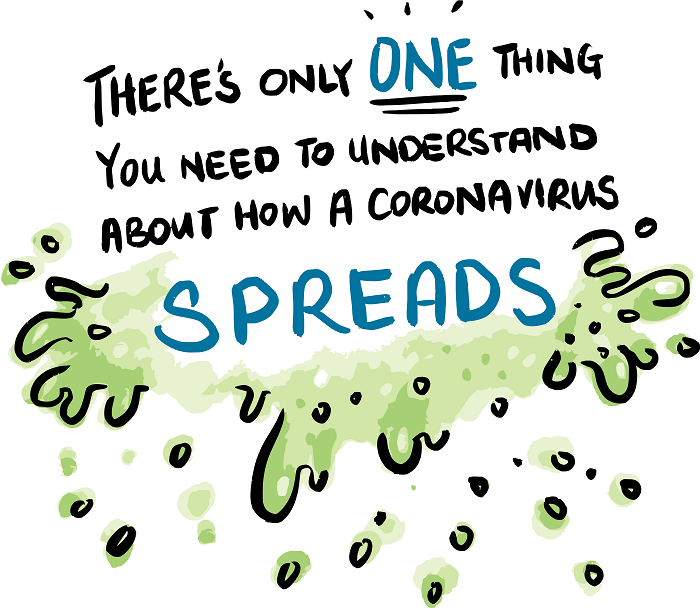 THERE'S ONLY ONE THING
YOU NEED TO UNDERSTAND
ABOUT HOW A CORONAVIRUS
SPREADS